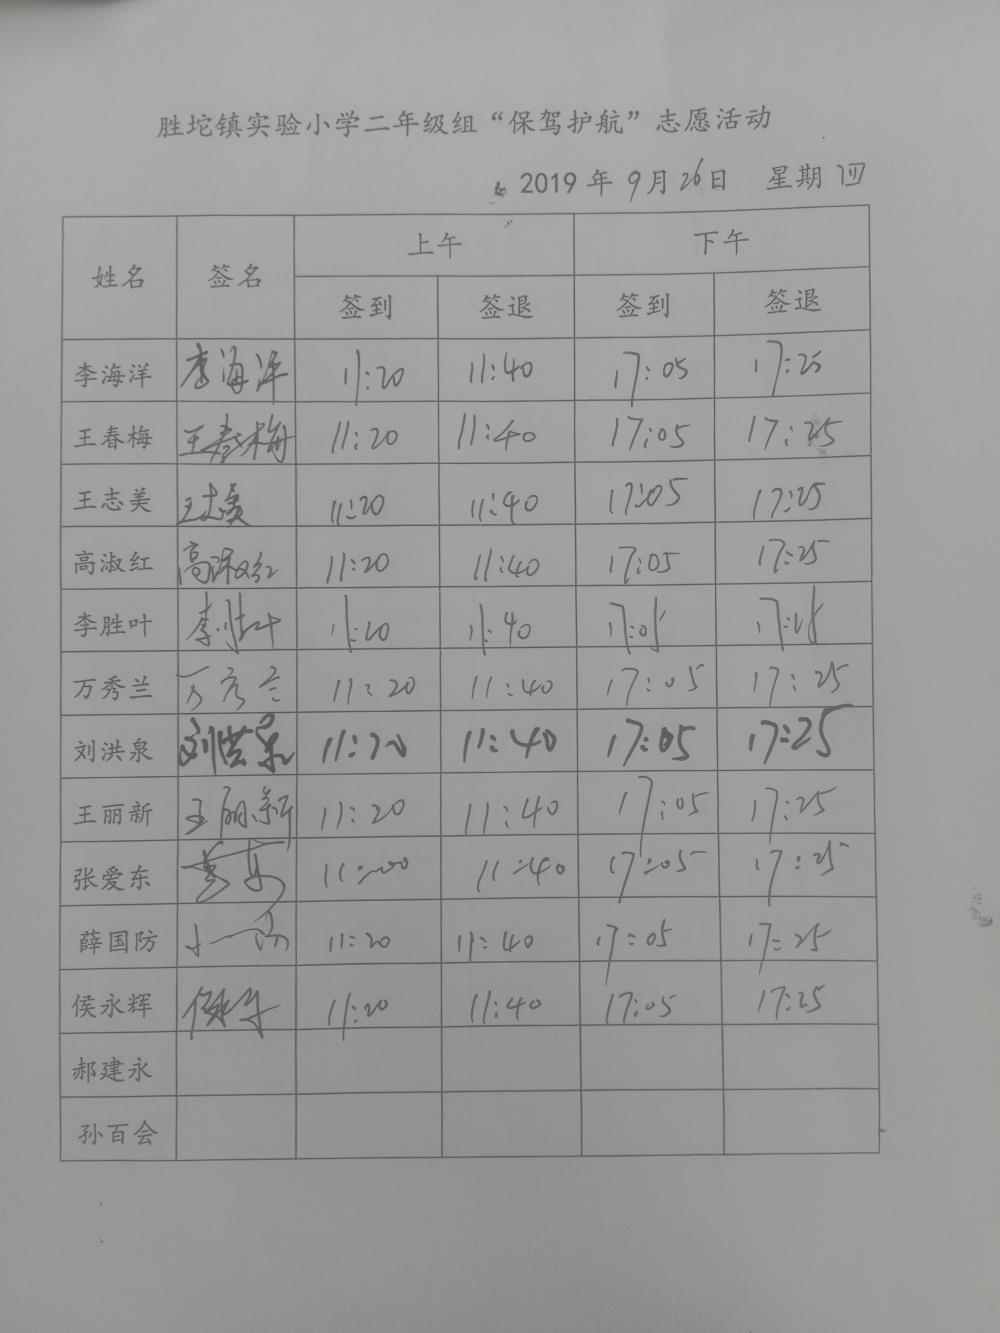 胜坨镇实验小学二年级组“保驾护航”志愿活动
2019年9月26日 星期四
姓名 签名 上午 下午
签到 签退 签到 签退
李海洋 李海洋 11:20 11:40 17:05 17:25
王春梅 王春梅 11:20 11:40 17:05 17:25
王志美 王志美 11:20 11:40 17:05 17:25
高淑红 高淑红 11:20 11:40 17:05 17:25
李胜叶 李胜叶 11:20 11:40 17:05 17:25
万秀兰 万秀兰 11:20 11:40 17:05 17:25
刘洪泉 刘洪泉 11:20 11:40 17:05 17:25
王丽新 王丽新 11:20 11:40 17:05 17:25
张爱东 11:40 17:05 17:25
薛国防 11:20 11:40 17:05 17:25
侯永辉 侯永辉 11:20 11:40 17:05 17:25
郝建永
孙百会